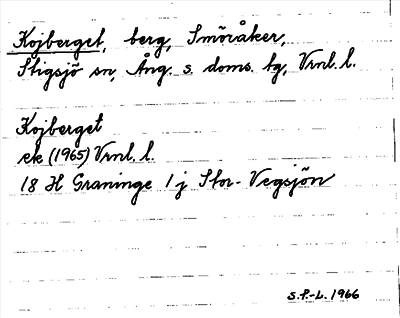 Kojberget, berg, Smöråker,
Stigsjö sn, Ång. s. doms. tg, Vrnl. l.
Kojberget
ek (1965) Vrnl. l.
18 H Graninge 1 j Stor-Vegsjön
S.P.-L. 1966